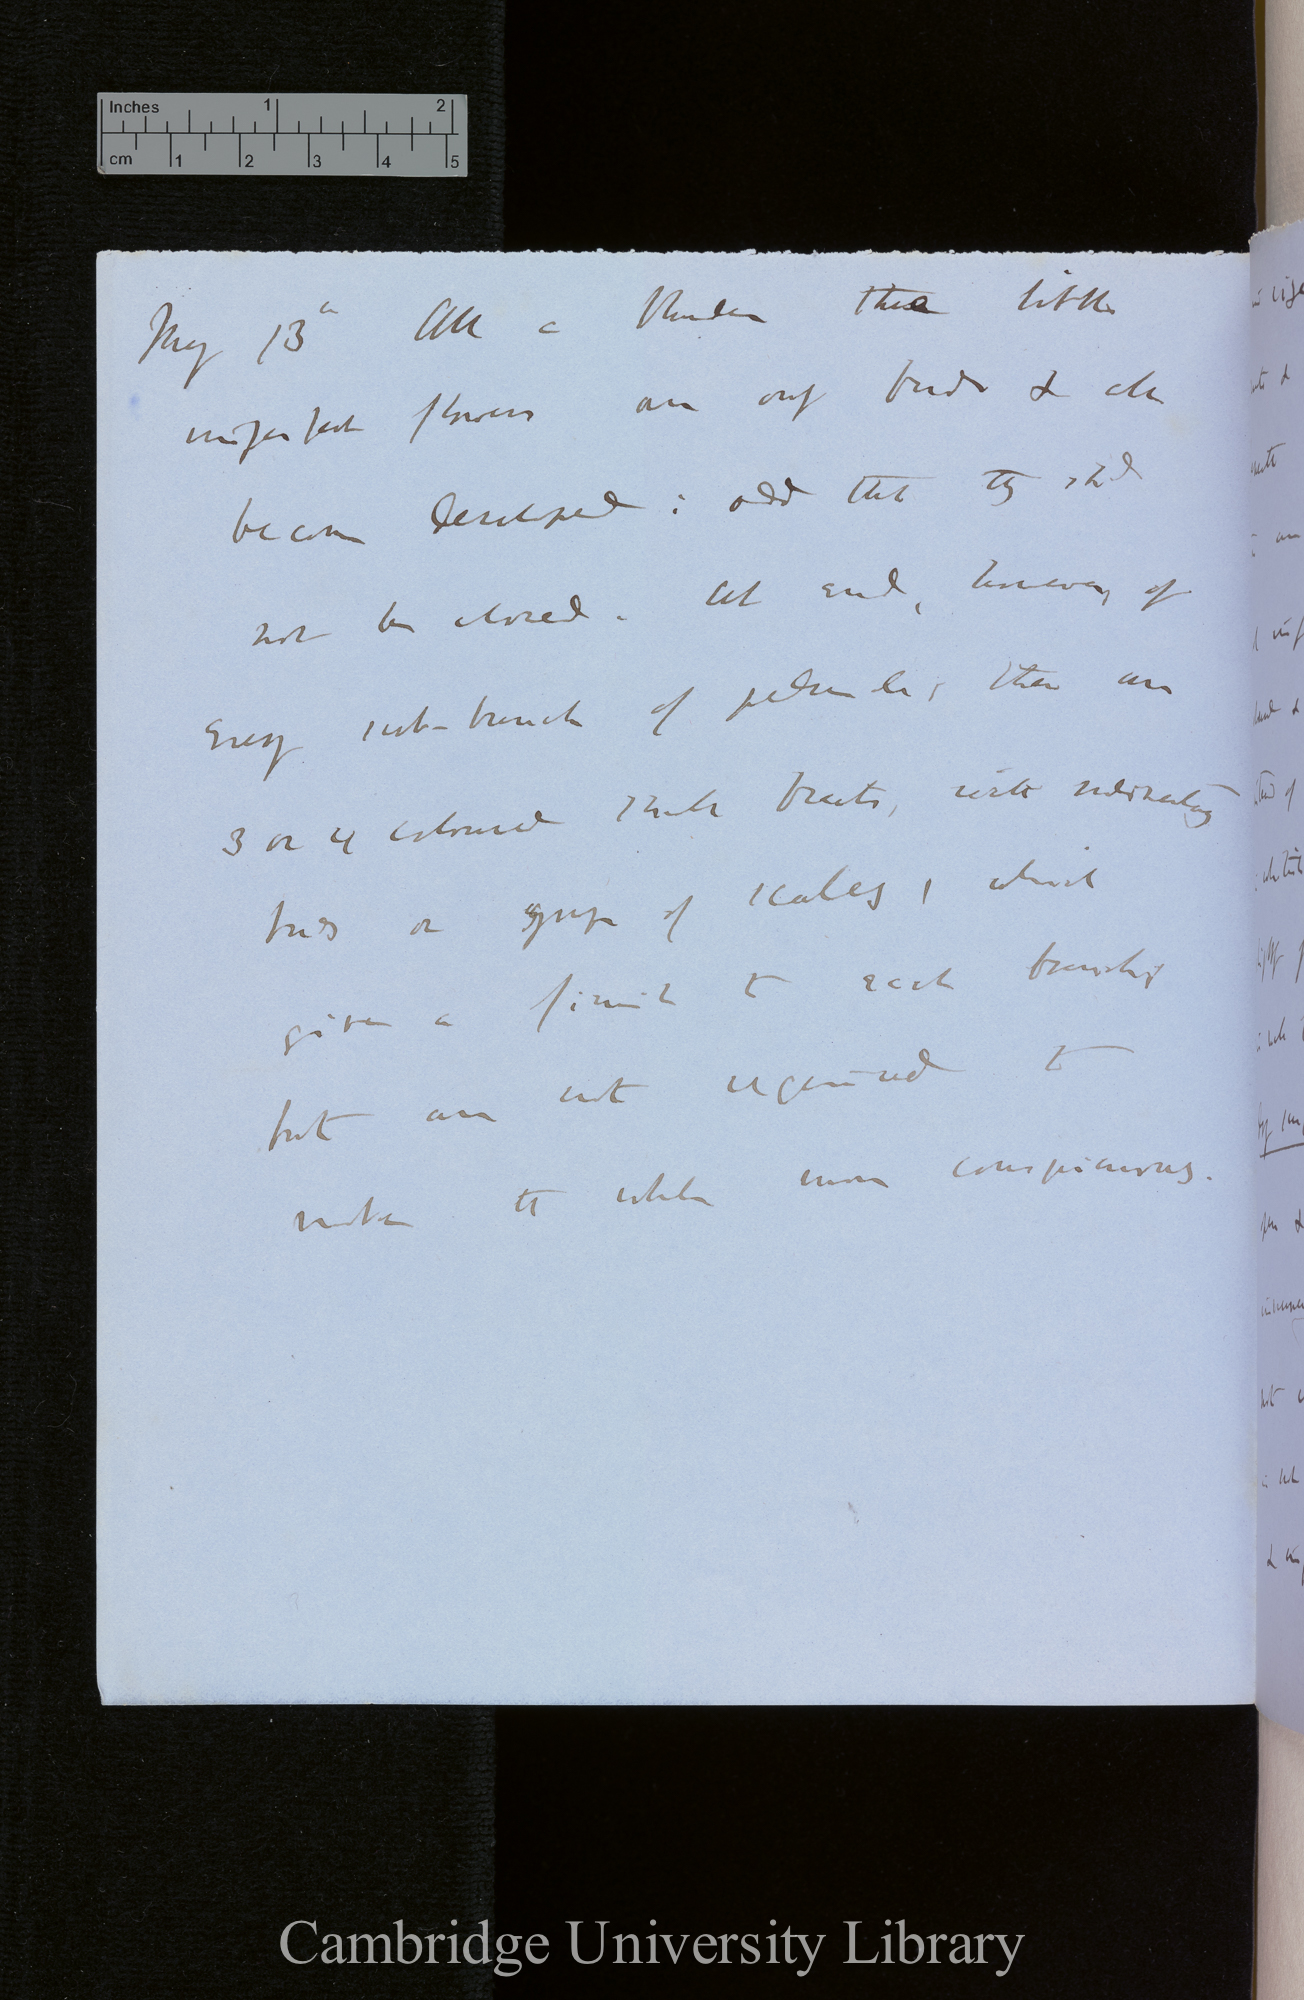 Inches 1 2
cm 1 2 3 4 5
May 13th All a blunder these little
imperfect flowers are only buds & all
become developed; odd that they shd
not be closed. At end, however, of
every sub-branch of peduncle, there are
3 or 4 coloured scale bracts, with rudimentary
buds or group of scales, which
give a finish to each branchlet
but are not required to
make the whole more conspicuous.
Cambridge University Library